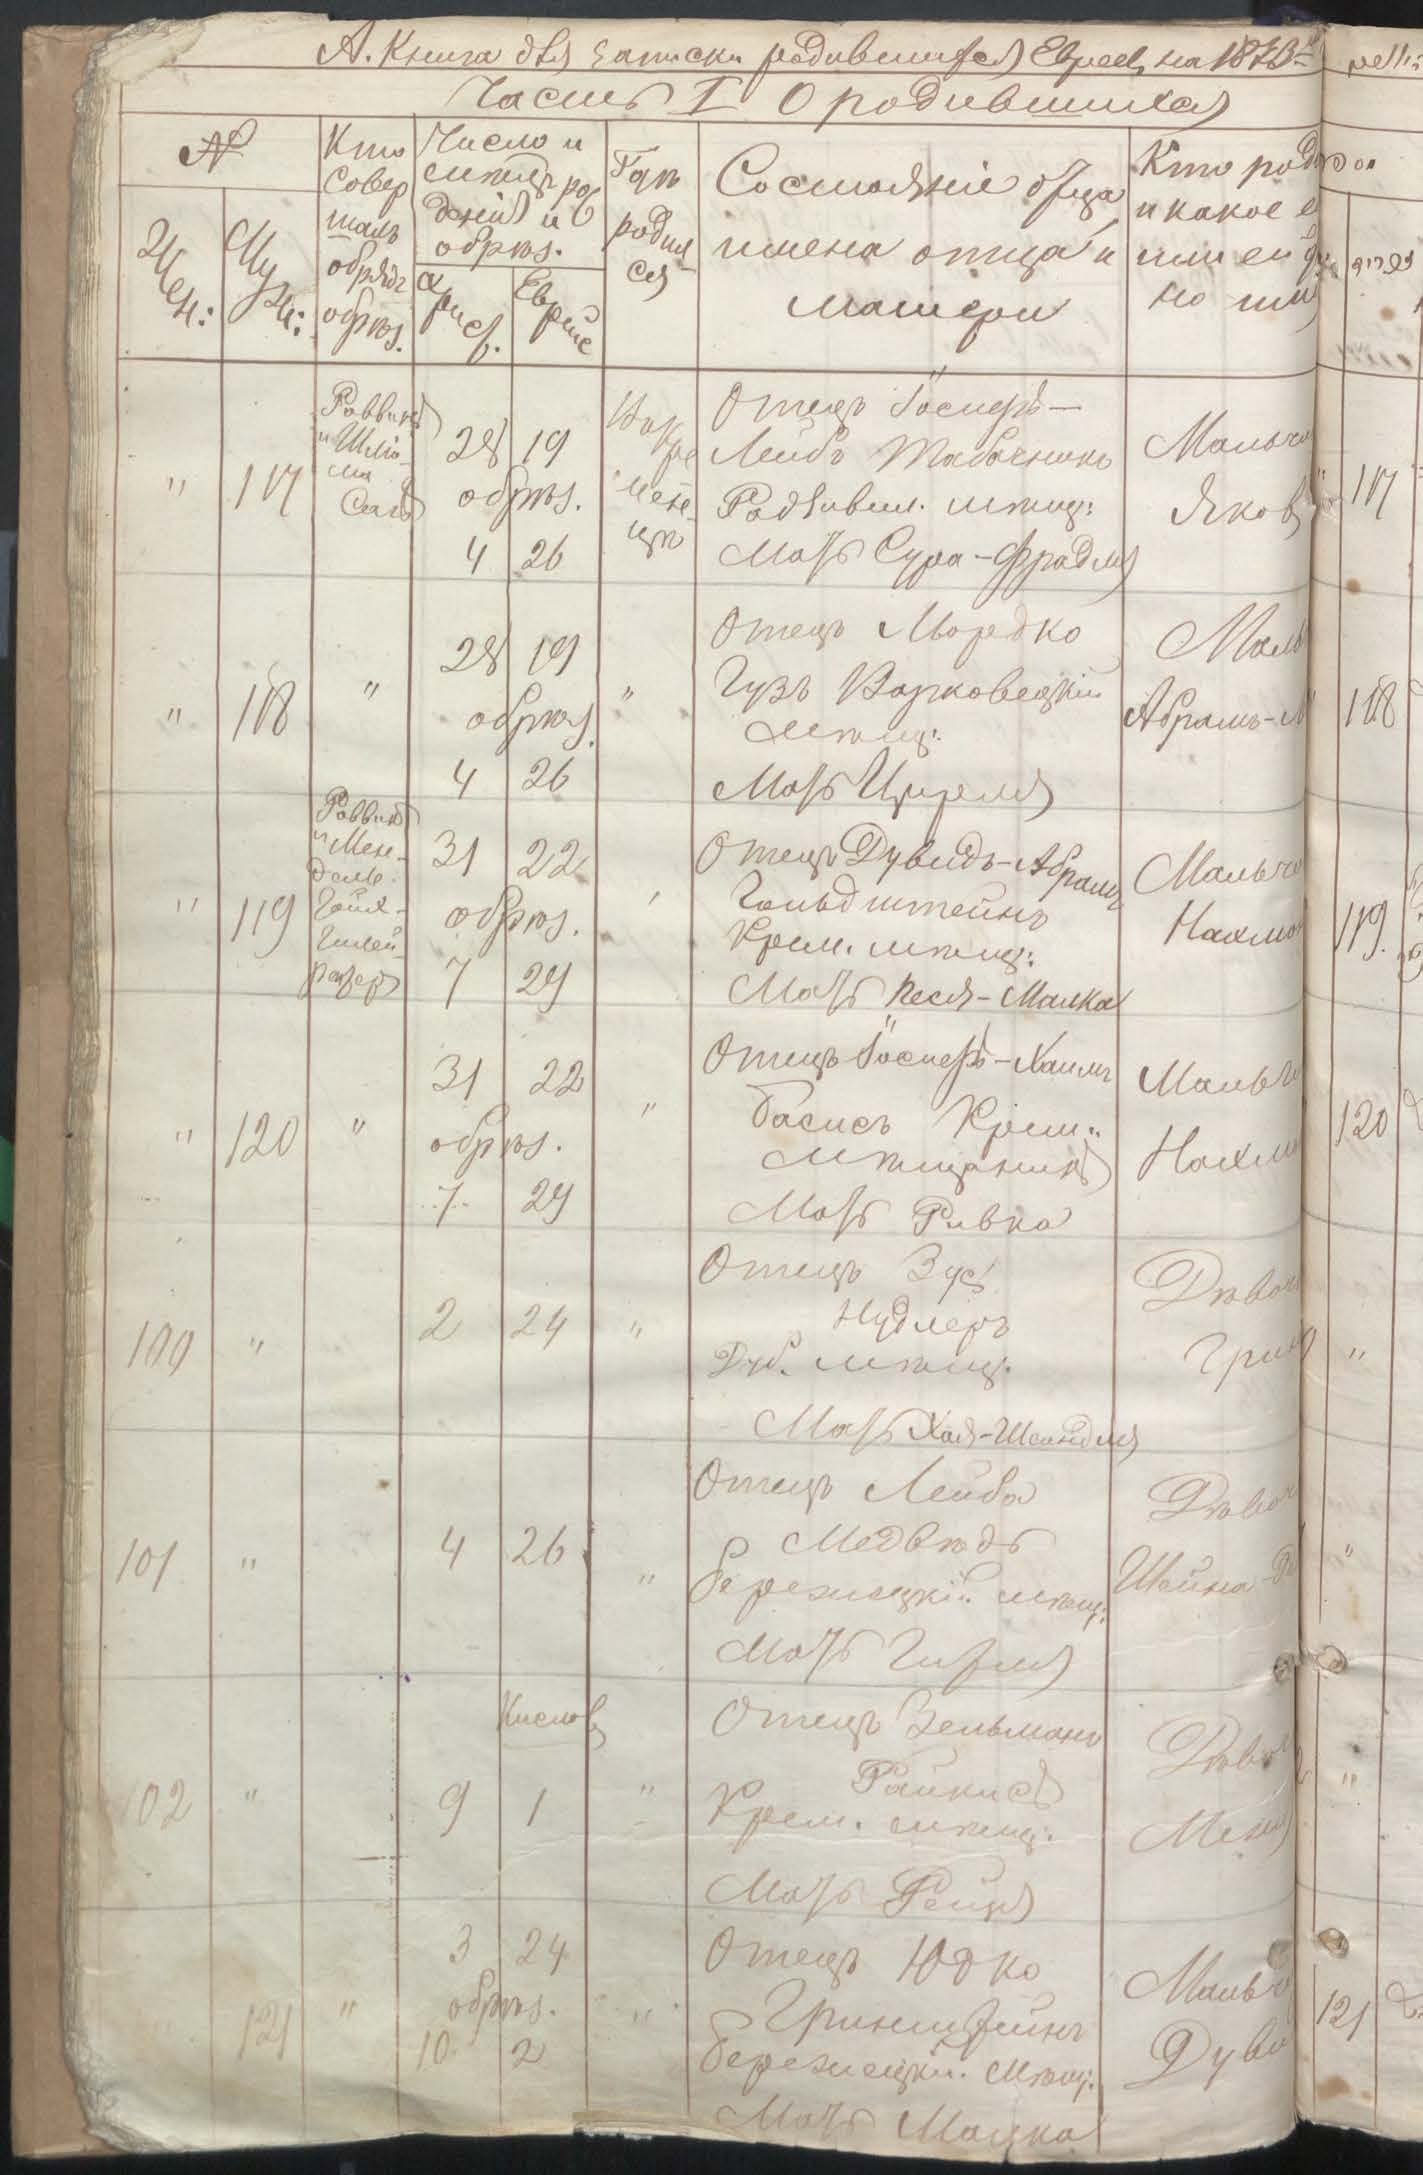 А. Книга для записки родившихся Евреев на 1873 г.
Часть I О родившихся
№
Жен:
Муж:
Кто
совер
шалъ
обрядъ
обрѣз.
Число и
мѣсяцъ рож
денія и
обрѣз.
Христ.
Еврейс
Гдѣ
родил
ся
Состояніе отца
имена отца и
матери
Кто род
и какое е
или ей д
но им
" 117
Раввинъ
и Шлио
ма
28 19
обрѣз.
4 26
Въ Кре
мене
цѣ
Отецъ Іосифъ-
Лейбъ Табачникъ
Радзивил. мѣщ:
Мать Сура-Фрадля
Мальч
Яковъ
117
" 118 "
28 19
обрѣз.
4 26
"
Отецъ Мордко
Гузъ Варковецкій
мѣщ:
Мать Цирля
Маль
Абрамъ-М
118
" 119
Раввинъ
и Мен-
дель
31 22
обрѣз.
7 29
"
Отецъ Дувидъ-Абрамъ
Гольдштейнъ
Крем. мѣщ:
Мать Песя-Малка
Мальч
Нахма
119.
" 120 "
31 22
обрѣз.
7 29
"
Отецъ Іосифъ-Хаимъ
Басисъ Крем:
мѣщанинъ
Мать Ривка
Мальч
Нахм
120
100 "
2 24
"
Отецъ Зусь
Нудлеръ
Дуб. мѣщ:
Мать Хая-Шейндля
Дѣвоч
"
101 "
4 26
"
Отецъ Лейба
Медвѣдь
Бережецкій мѣщ:
Мать Гитля
Дѣвоч
Шейна-Р
"
102 "
Кислев
9 1
"
Отецъ Зельманъ
Райкисъ
Крем. мѣщ:
Мать Рейзя
Дѣвоч
"
121 "
3 24
обрѣз.
10 2
"
Отецъ Юдко
Гринштейнъ
Бережецкій мѣщ:
Мать Малка
Мальч
Дуви
121